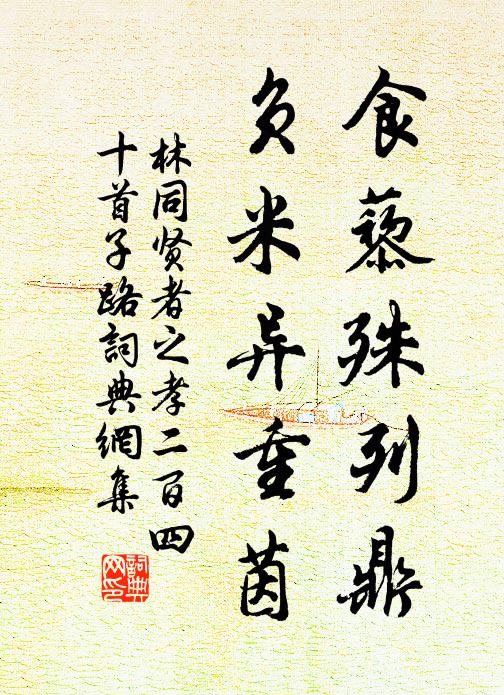 食藜殊列鼎
负米异重茵
林同贤者之孝二百四
十首子路詞典網集
詞典
网印